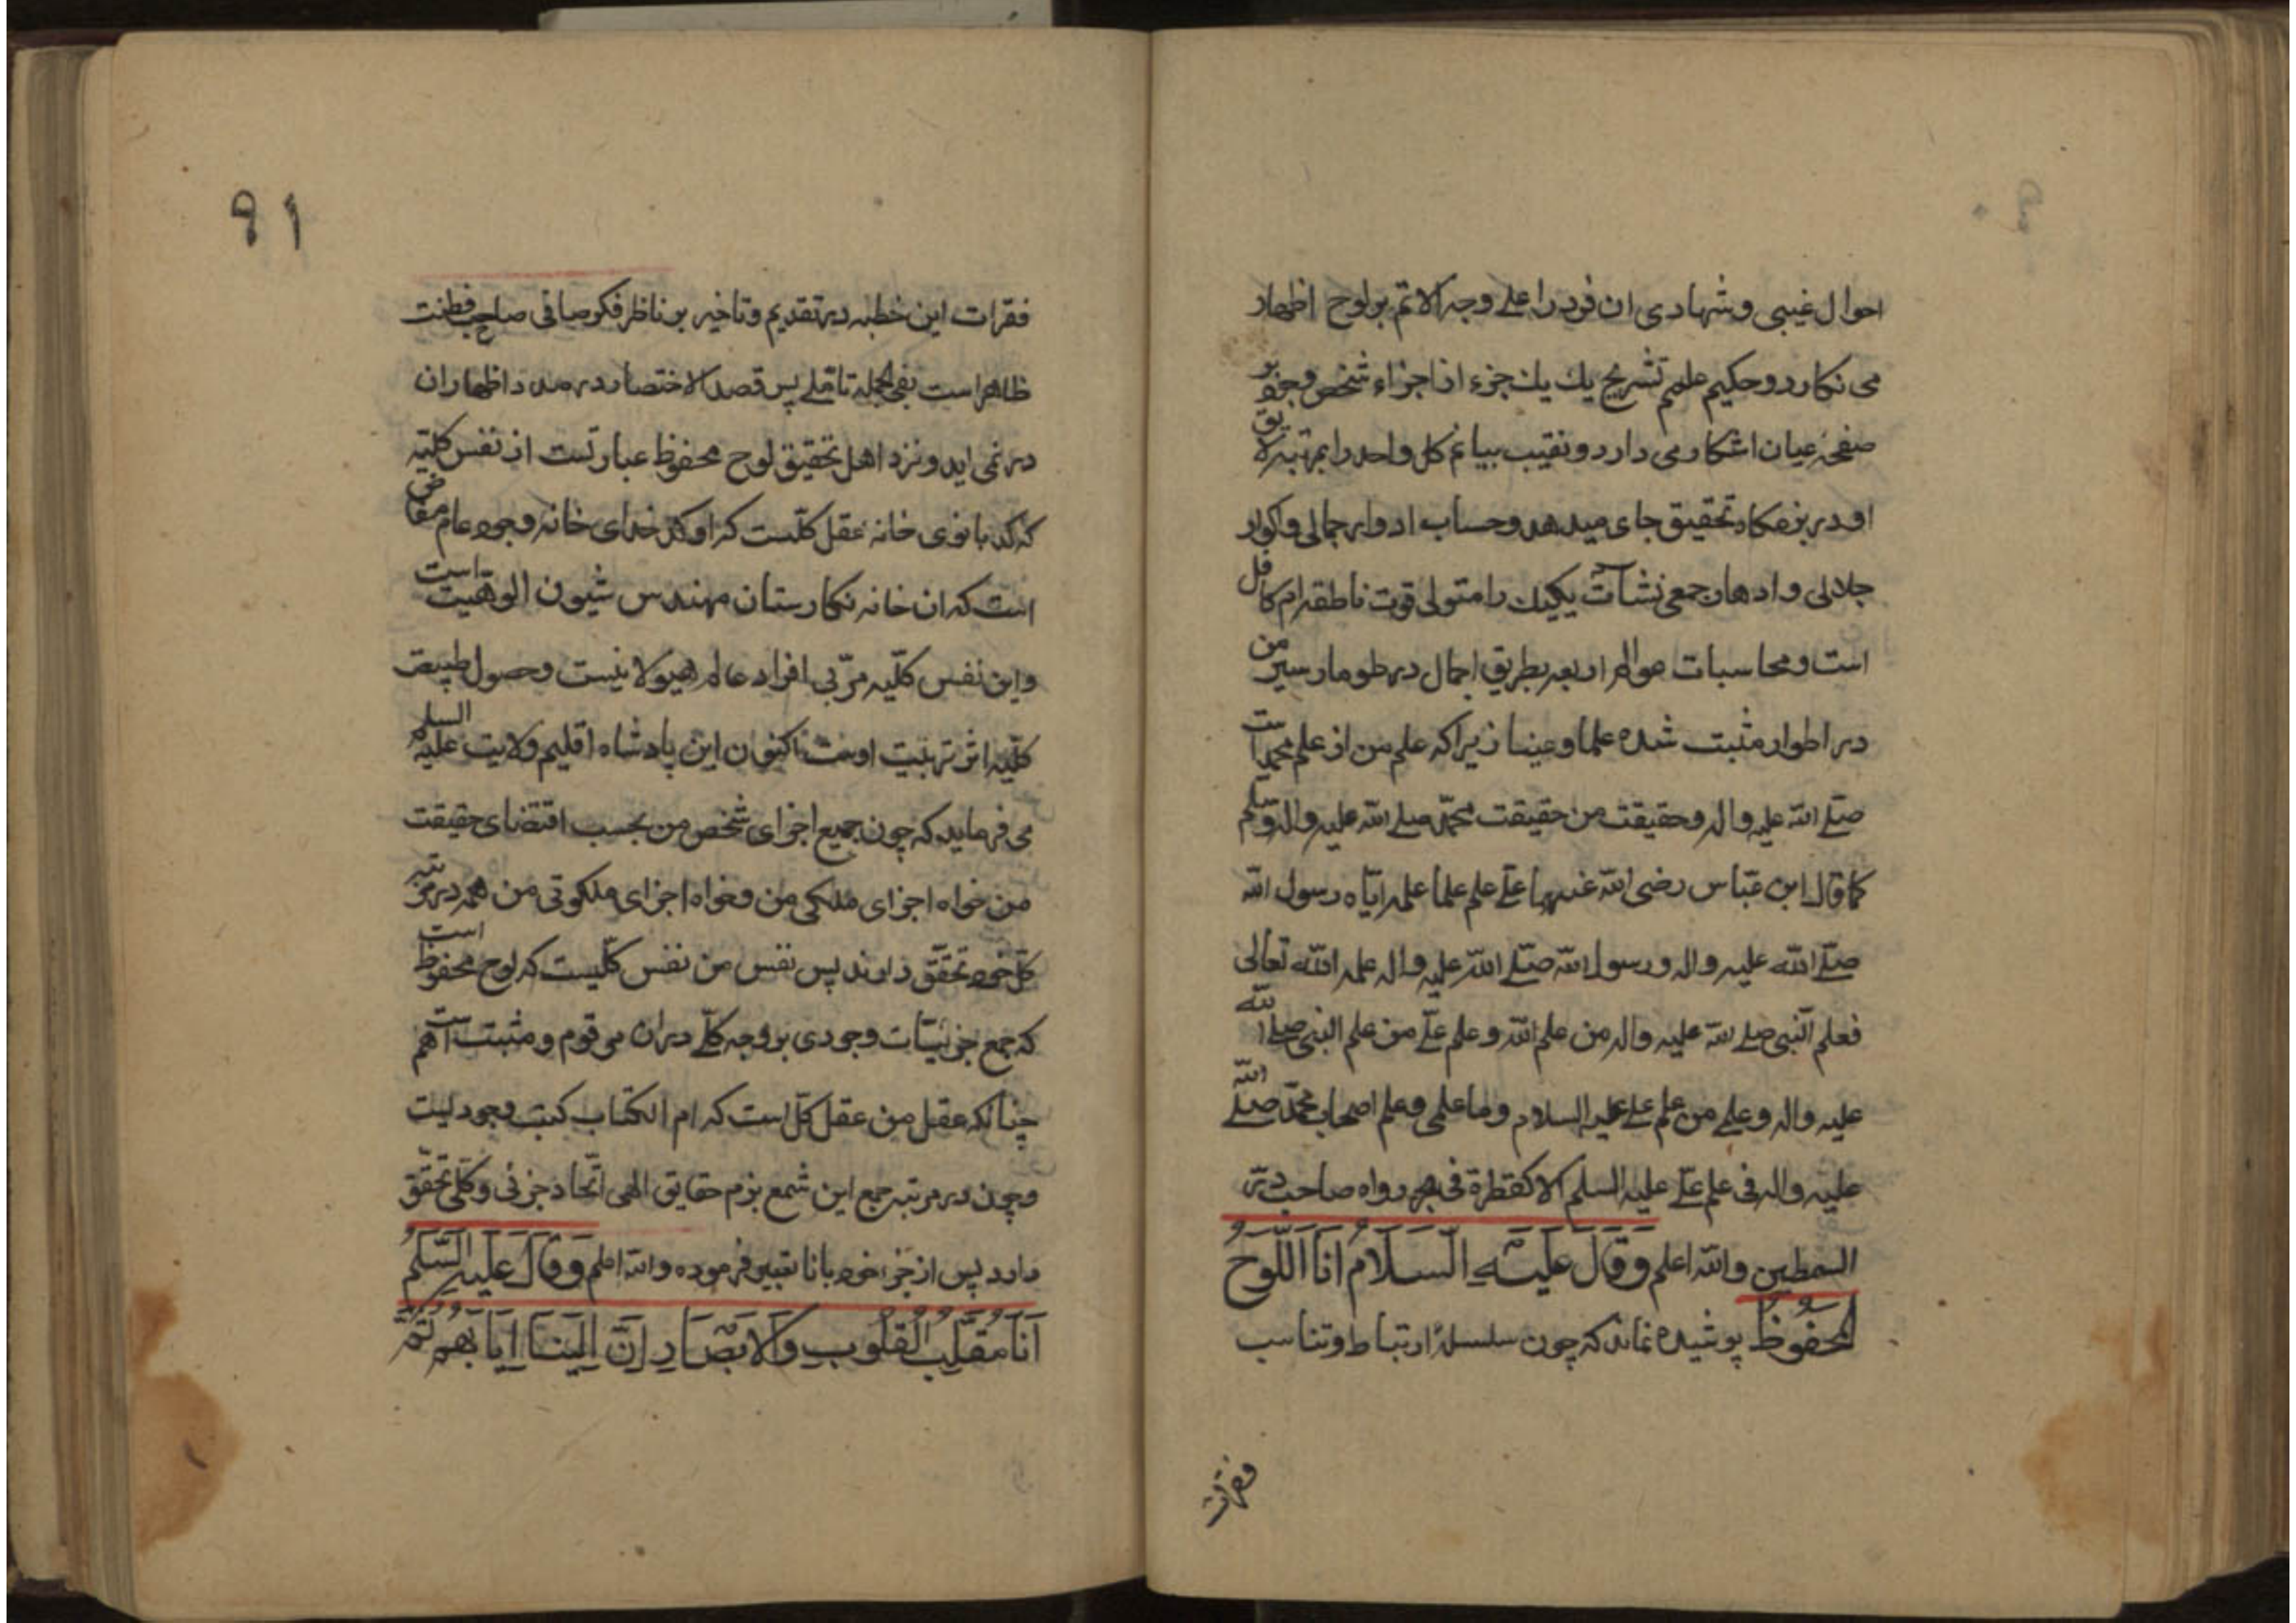 احوال غیبی و شهادی ان فرد را علی وجه الاتم بر لوح اظهار
می نکارد و حکیم علمم تشریح یك یك جزء از اجزاء شخص وجود بر
صفحهٔ عیان اشکار می دارد و نقیب بیانم کل واحد را بمرتبه لایق
او در بزمکاه تحقیق جای میدهد و حساب ادوار جمالی و اکوار
جلالی و ادهان جمعی نشآت یکیك را متولی قوت ناطقه ام کافل
است و محاسبات عوالم اربعه بطریق اجمال در طومار سیر من
در اطوار مثبت شده علما و عینا زیرا که علم من از علم محمد است
صلی الله علیه واله و حقیقت من حقیقت محمد صلی الله علیه واله وسلم
کما قال ابن عباس رضی الله عنهما علی علم علما علمه ایاه رسول الله
صلی الله علیه واله ورسول الله صلی الله علیه واله علمه الله تعالی
فعلم النبی صلی الله علیه واله من علم الله وعلم علی من علم النبی صلی الله
علیه واله وعلمی من علم علی علیه السلام وما علمی وعلم اصحاب محمد صلی الله
علیه واله فی علم علی علیه السلم الا کقطرة فی بحر رواه صاحب درر
السمطین والله اعلم وَقَالَ عَلَیْهِ السَّلَامُ اَنَا اللَّوْحُ
المَحْفُوظُ پوشیده نماند که چون سلسلهٔ ارتباط و تناسب
فقرات
۹۱
فقرات این خطبه در تقدیم و تاخیر بر ناظر فکر صافی صاحب فطنت
ظاهر است بفی الجمله تاملی پس قصد الاختصار در صدد اظهار ان
در نمی اید و نزد اهل تحقیق لوح محفوظ عبارتست از نفس کلیّه
که کدبانوی خانه عقل کلّست که او کدخدای خانه وجود عام مفاض
است که ان خانه نکارستان مهندس شیون الوهیت است
و این نفس کلّیه مربّی افراد عالم هیولانیست و حصول طبیعت
کلّیه اثر تربیت اوست اکنون این پادشاه اقلیم ولایت علیه السلم
می فرماید که چون جمیع اجزای شخص من بحسب اقتضای حقیقت
من خواه اجزای ملکی من و خواه اجزای ملکوتی من همه در مرتبه
کلّ خود تحقّق دارند پس نفس من نفس کلّیست که لوح محفوظ است
که جمع جزئیّات وجودی بر وجه کلّی در ان مرقوم و مثبت است هم
چنانکه عقل من عقل کلّ است که ام الکتاب کتب وجودیست
و چون در مرتبه جمع این شمع بزم حقایق الهی اتّحاد جزئی و کلّی تحقّق
دارد پس از جزء خود بانا تعبیر فرموده والله اعلم وَقَالَ عَلَیْهِ السَّلَمُ
اَنَا مُقَلِّبُ الْقُلُوبِ وَالاَبْصَارِ اِنَّ اِلَیْنَا اِیَابَهُمْ ثُمَّ